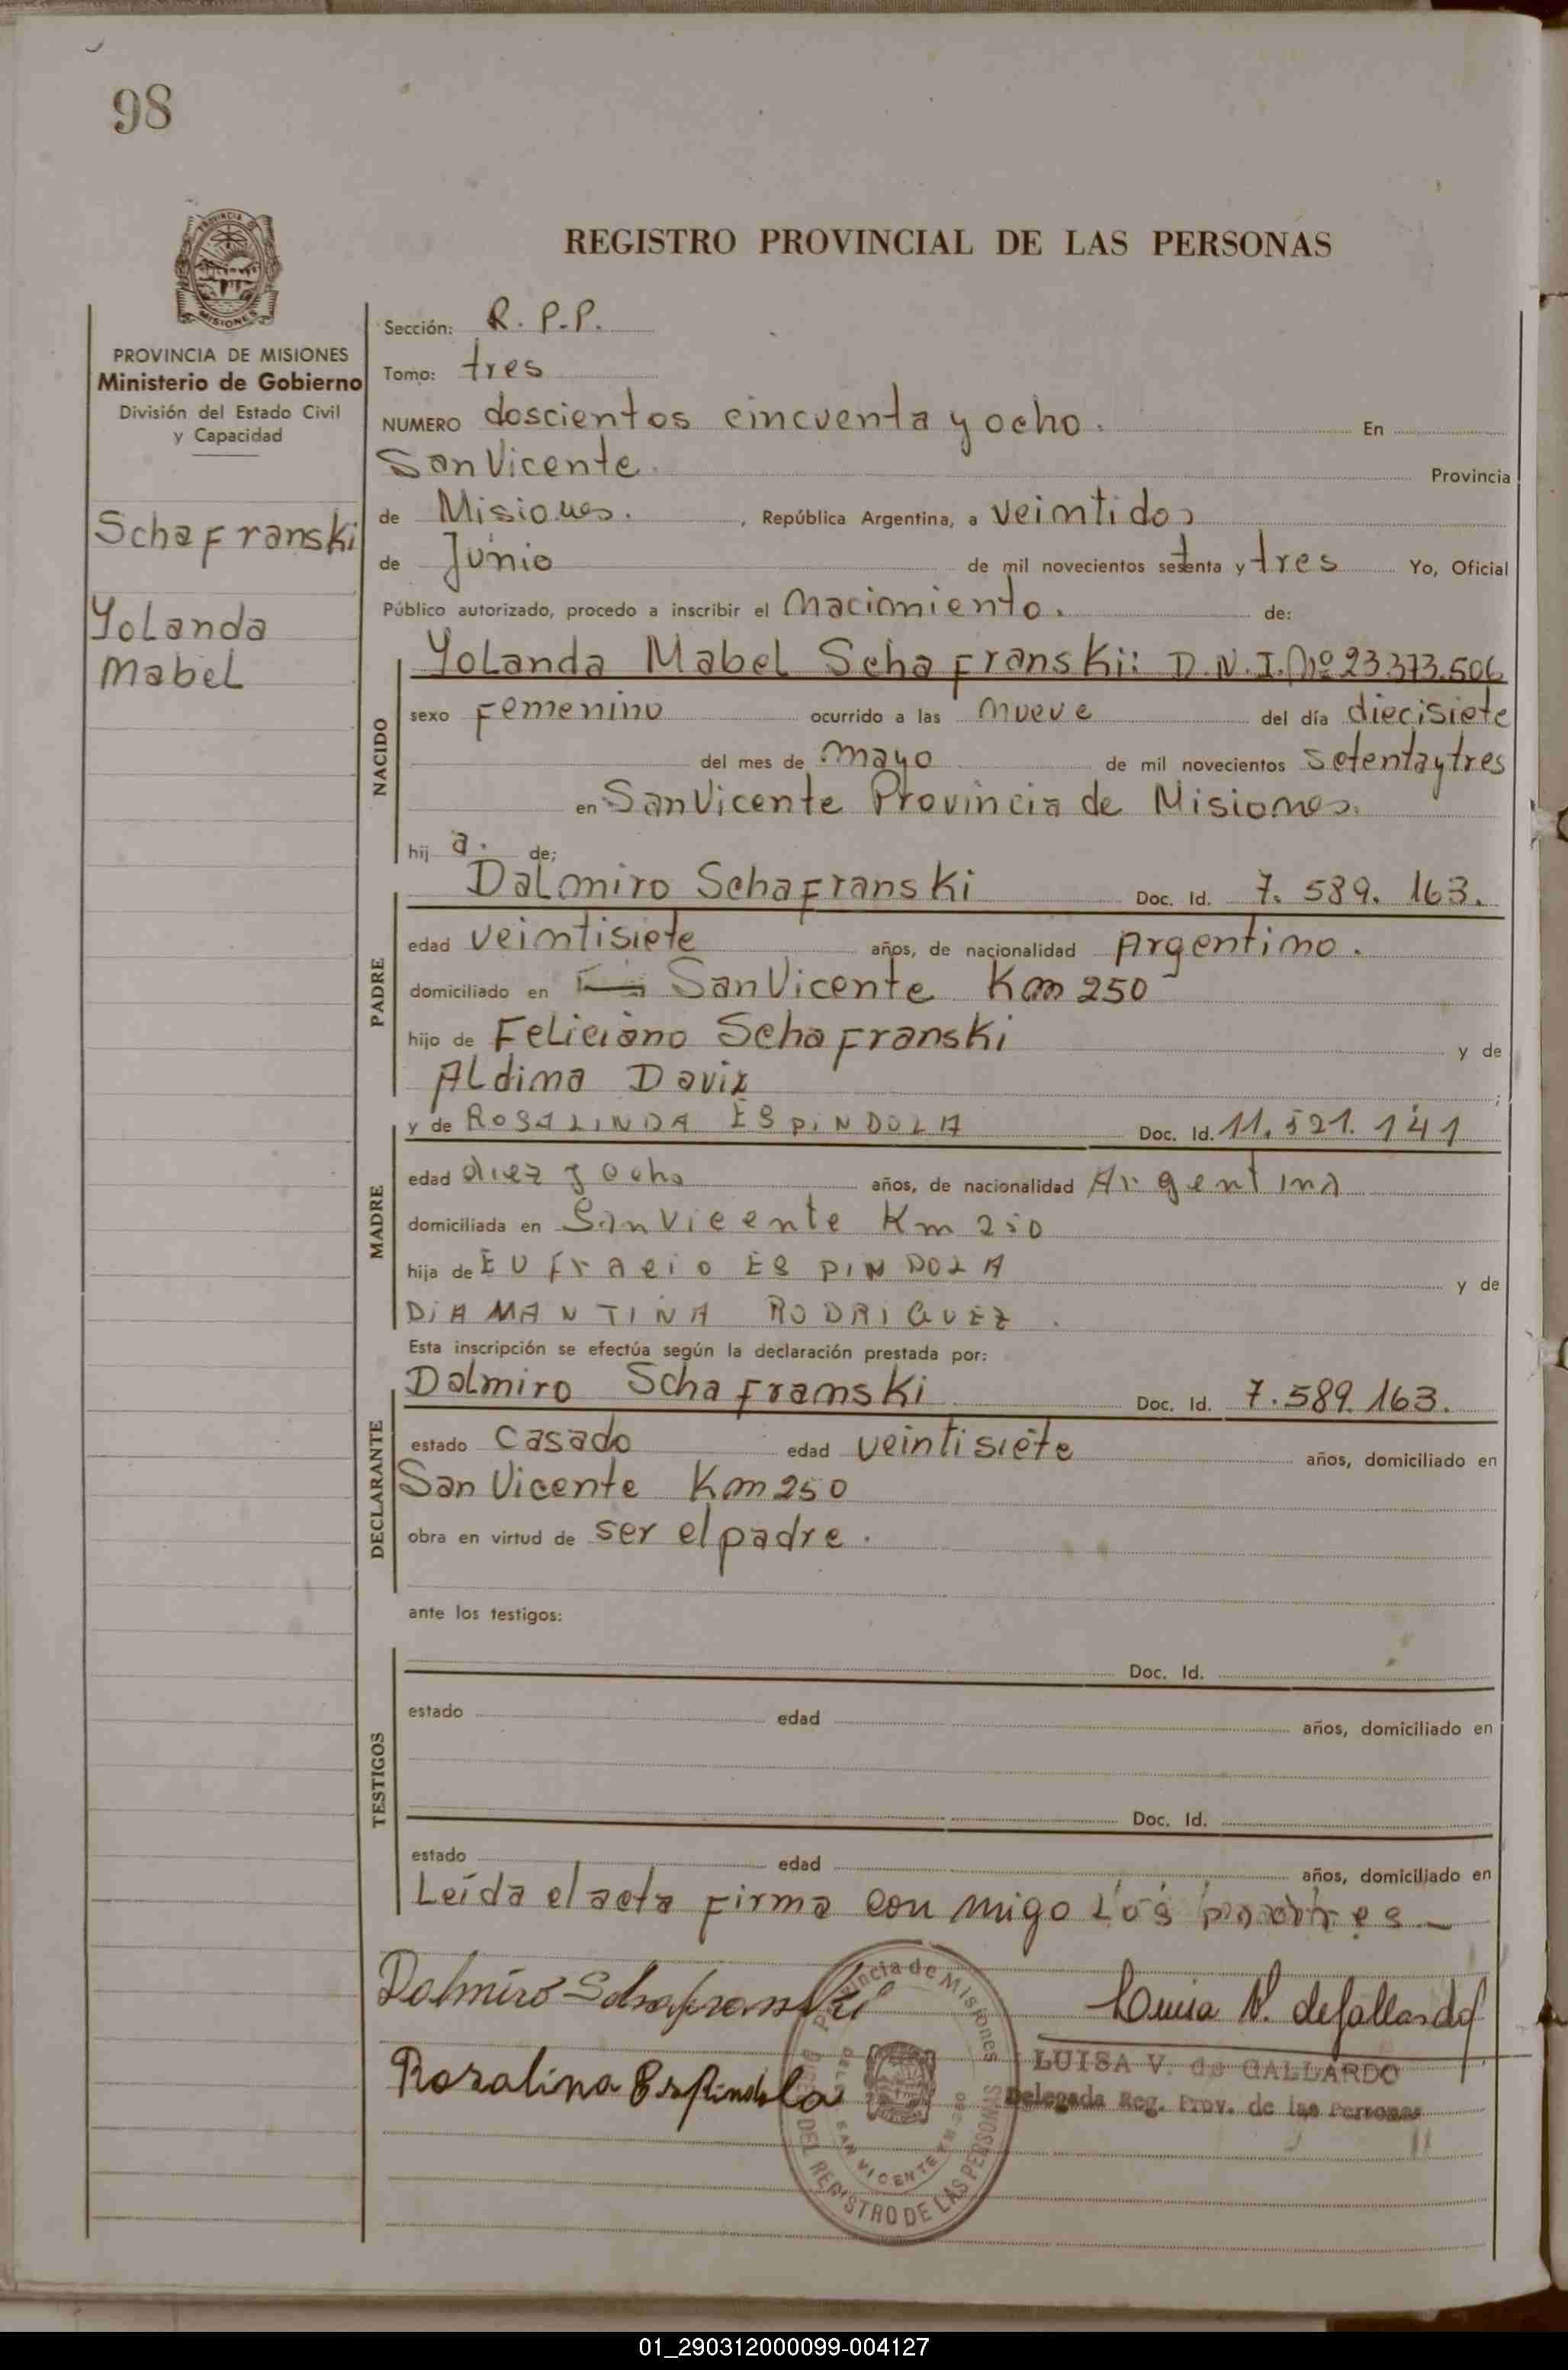 98
PROVINCIA DE MISIONES
Ministerio de Gobierno
División del Estado Civil
y Capacidad
Schafranski
Yolanda
Mabel
REGISTRO PROVINCIAL DE LAS PERSONAS
Sección: R. P.P.
Tomo: tres
NUMERO doscientos cincuenta y ocho. En
San Vicente. Provincia
de Misiones. , República Argentina, a veintidos
de Junio de mil novecientos setenta y tres Yo, Oficial
Público autorizado, procedo a inscribir el Nacimiento. de:
NACIDO
Yolanda Mabel Schafranski: D.N.I. Nº 23.373.506
sexo femenino ocurrido a las nueve del día diecisiete
del mes de mayo de mil novecientos setenta y tres
en San Vicente Provincia de Misiones.
hij a. de;
PADRE
Dalmiro Schafranski Doc. Id. 7. 589. 163.
edad veintisiete años, de nacionalidad Argentino.
domiciliado en San Vicente Km 250
hijo de Feliciano Schafranski y de
Aldima Davix ;
MADRE
y de ROSALINDA ESPINDOLA Doc. Id. 11. 521. 141
edad diez y ocho años, de nacionalidad Argentina
domiciliada en San Vicente Km 250
hija de EUfracio ESPINDOLA y de
DiAMANTINA RODRIGUEZ .
Esta inscripción se efectúa según la declaración prestada por:
DECLARANTE
Dalmiro Schafranski Doc. Id. 7.589.163.
estado casado edad veintisiete años, domiciliado en
San Vicente Km 250
obra en virtud de ser el padre.
ante los testigos:
TESTIGOS
Doc. Id.
estado edad años, domiciliado en
Doc. Id.
estado edad años, domiciliado en
Leída el acta firma con migo Los padres
Dalmiro Schafranski
Luisa V. de Gallardo
Rosalina Espindola
LUISA V. de GALLARDO
Delegada Reg. Prov. de las Personas
Provincia de Misiones
DEL REGISTRO DE LAS PERSONAS
SAN VICENTE
01_290312000099-004127